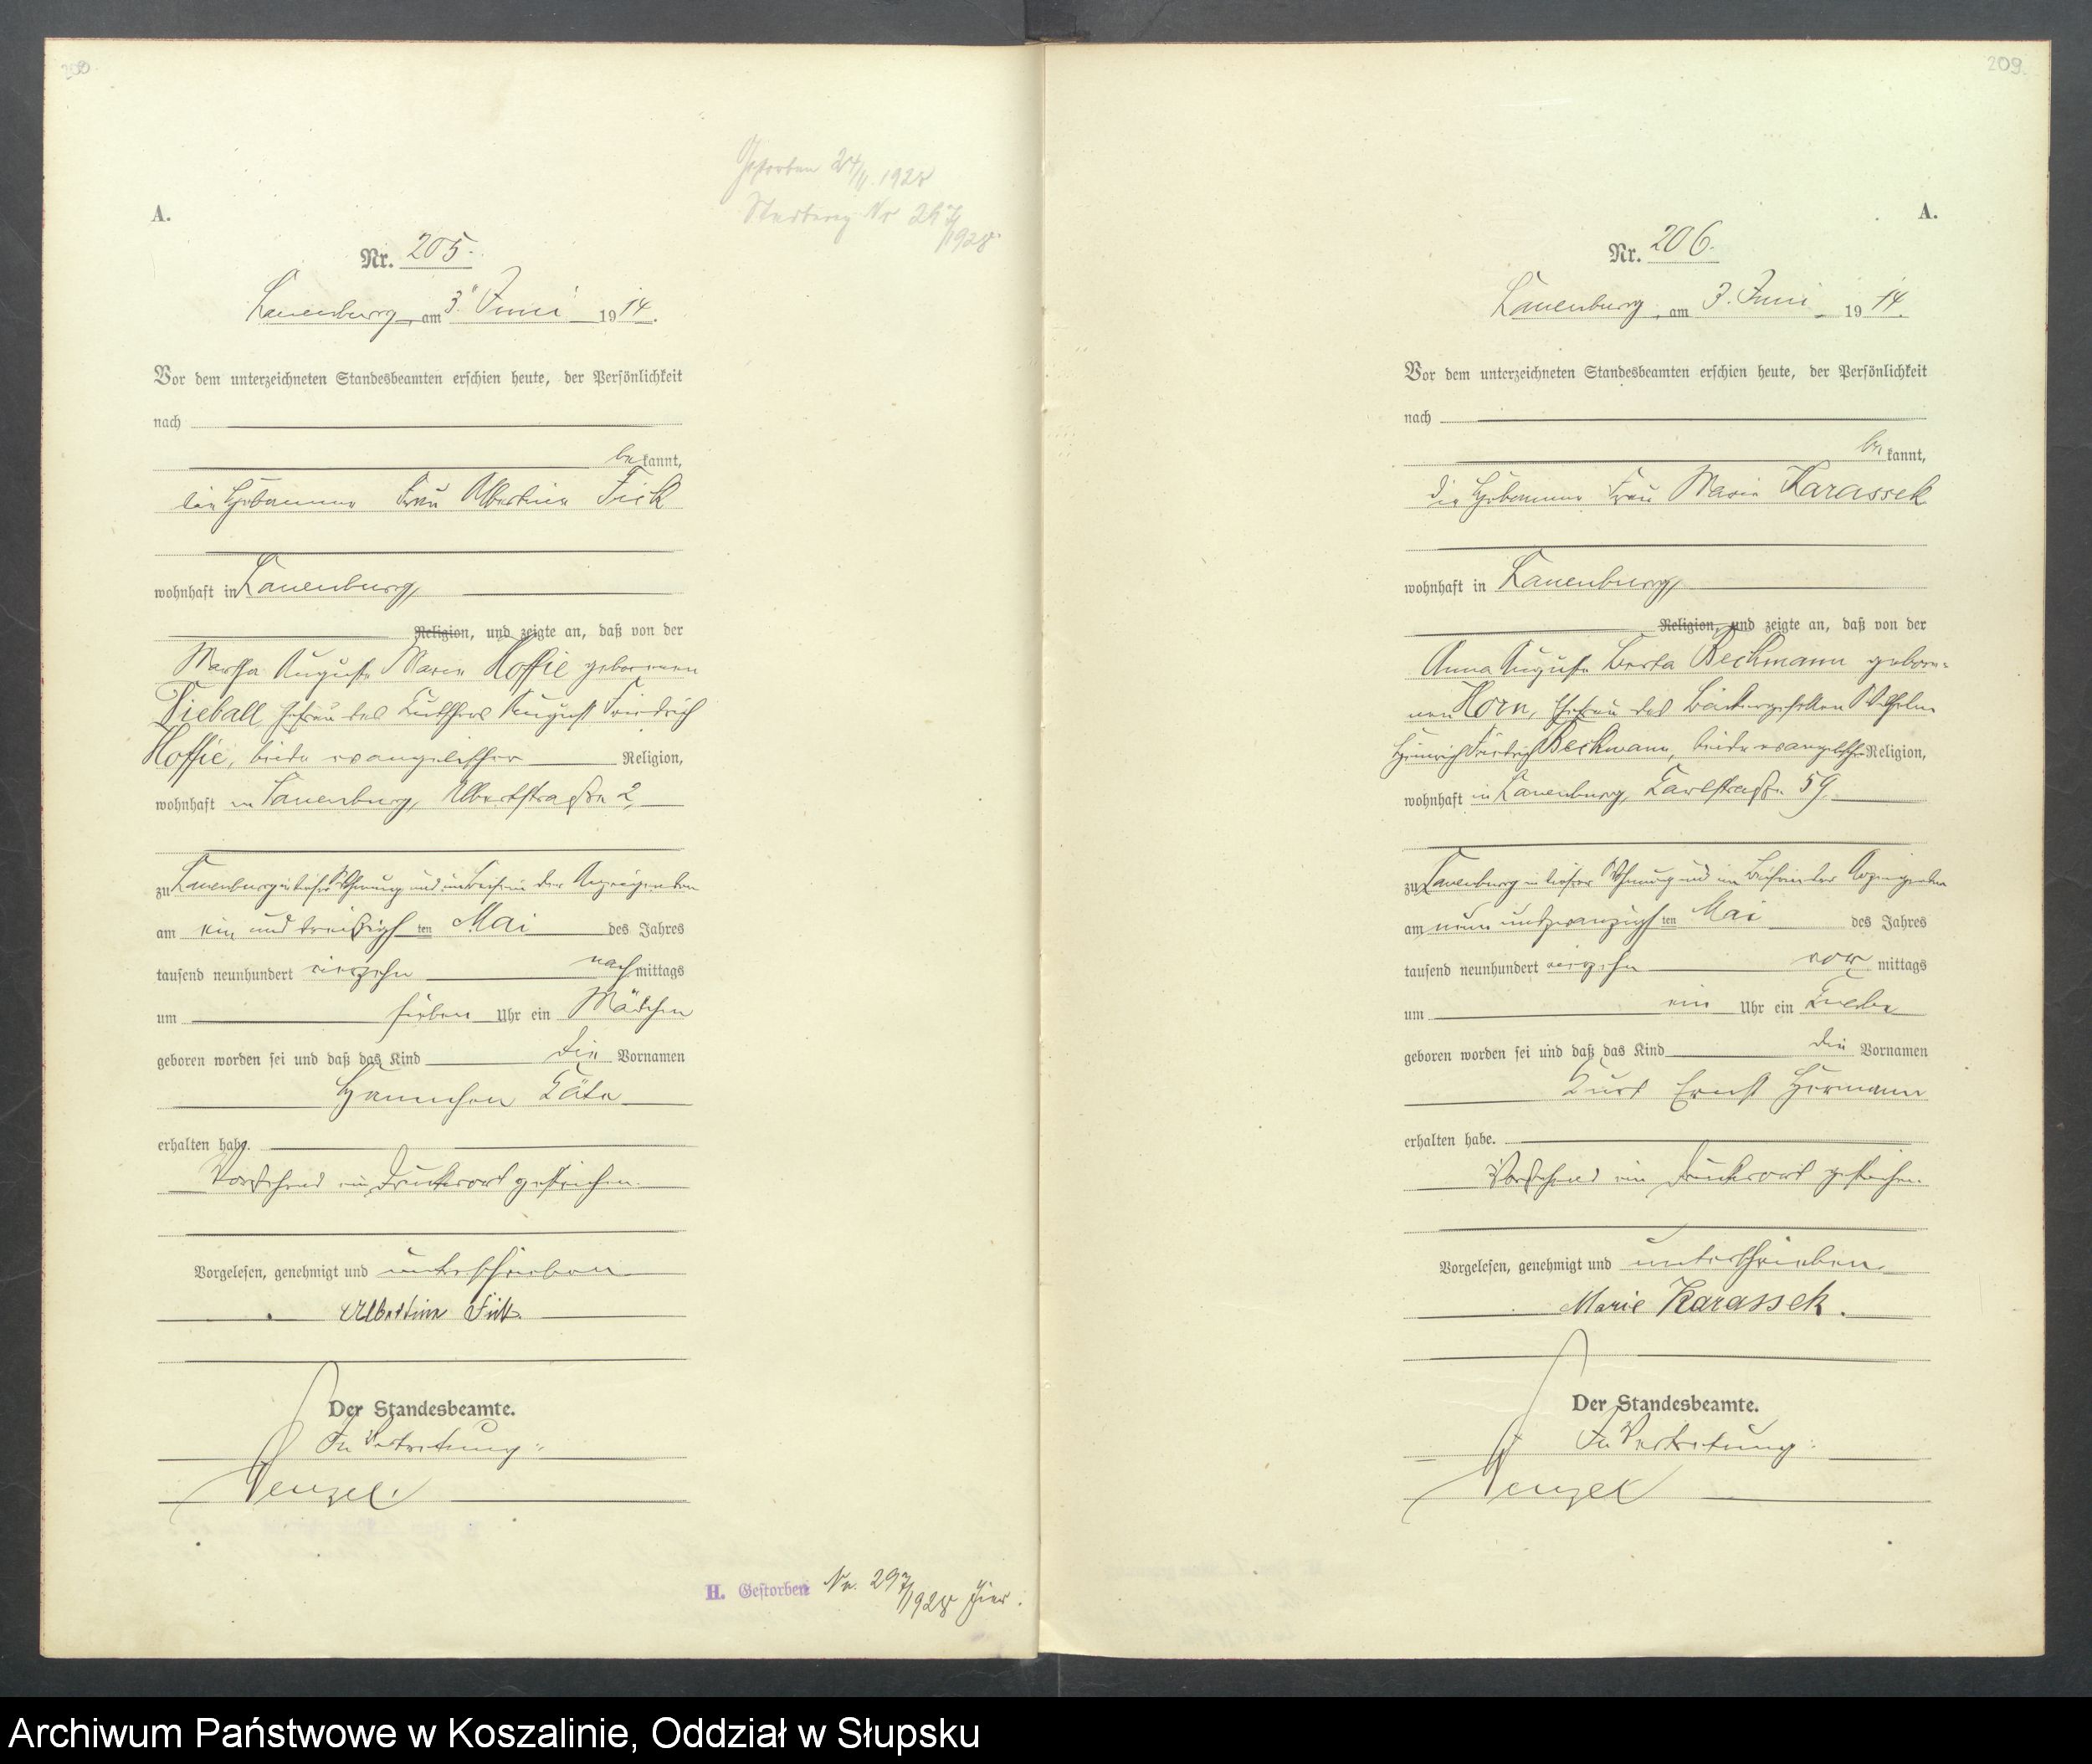 Gestorben 24/11. 1928
Nr
1928
A.
Nr. 205.
Lauenburg, am 3. Juni 1914.
Vor dem unterzeichneten Standesbeamten erschien heute, der Persönlichkeit
nach
be kannt,
die Hebamme Frau Albertine Fick
wohnhaft in Lauenburg,
Religion, und zeigte an, daß von der
Martha Auguste Marie Hoffie geborenen
Tieball, Ehefrau des Kutschers August Friedrich
Hoffie, beide evangelischer Religion,
wohnhaft in Lauenburg, Albertstraße 2,
zu Lauenburg in dieser Wohnung und im Beisein der Anzeigenden
am ein und dreißigsten Mai des Jahres
tausend neunhundert vierzehn nachmittags
um sieben Uhr ein Mädchen
geboren worden sei und daß das Kind die Vornamen
Hannchen Käte
erhalten habe.
Vorstehend ein Druckwort gestrichen.
Vorgelesen, genehmigt und unterschrieben
Albertine Fick.
Der Standesbeamte.
In Vertretung:
Wenzel.
H. Gestorben Nr. 297/1928 hier.
209.
A.
Nr. 206.
Lauenburg, am 3. Juni 1914.
Vor dem unterzeichneten Standesbeamten erschien heute, der Persönlichkeit
nach
be kannt,
die Hebamme Frau Marie Karassek
wohnhaft in Lauenburg,
Religion, und zeigte an, daß von der
Anna Auguste Berta Beckmann gebore-
nen Horn, Ehefrau des Bäckergesellen Wilhelm
Heinrich Friedrich Beckmann, beide evangelischer Religion,
wohnhaft in Lauenburg, Karlstraße 59,
zu Lauenburg in dieser Wohnung und im Beisein der Anzeigenden
am neun und zwanzigsten Mai des Jahres
tausend neunhundert vierzehn vor mittags
um ein Uhr ein Knabe
geboren worden sei und daß das Kind die Vornamen
Kurt Ernst Hermann
erhalten habe.
Vorstehend ein Druckwort gestrichen.
Vorgelesen, genehmigt und unterschrieben
Marie Karassek.
Der Standesbeamte.
In Vertretung:
Wenzel
Archiwum Państwowe w Koszalinie, Oddział w Słupsku